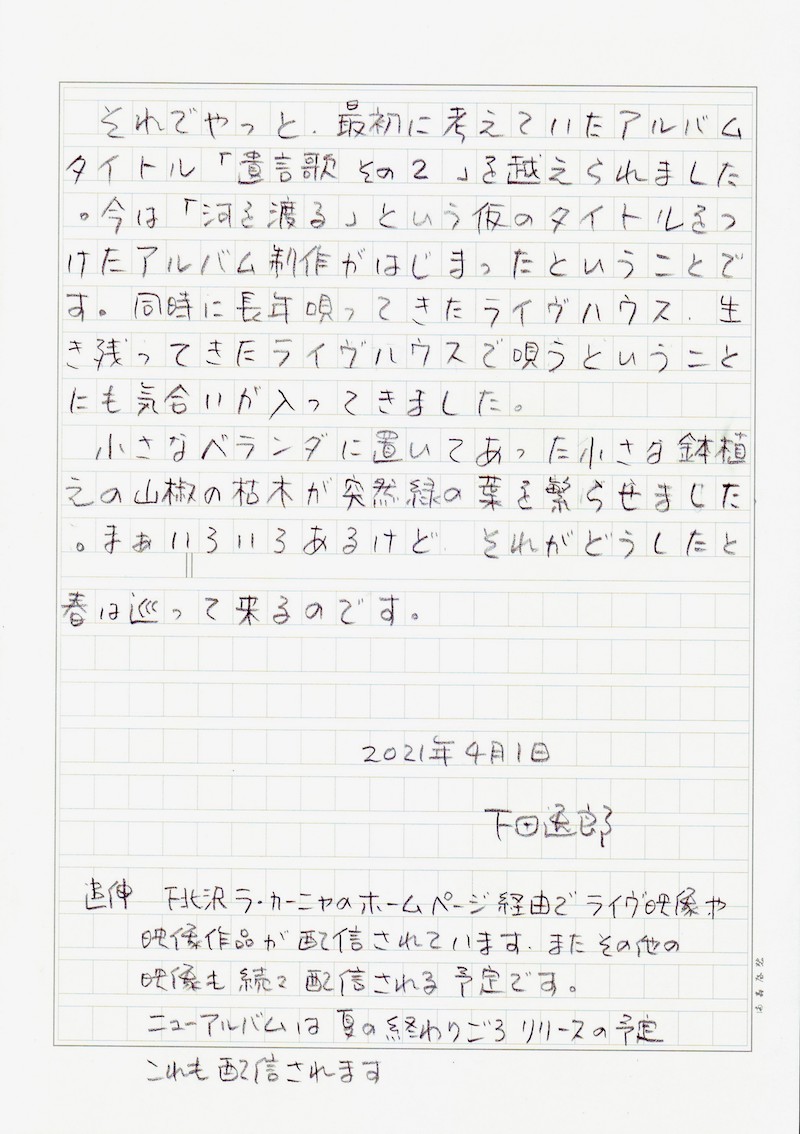 それでやっと、最初に考えていたアルバム
タイトル「遺言歌 その2」を越えられました
。今は「河を渡る」という仮のタイトルをつ
けたアルバム制作がはじまったということで
す。同時に長年唄ってきたライヴハウス、生
き残ってきたライヴハウスで唄うということ
にも気合いが入ってきました。
小さなベランダに置いてあった小さな鉢植
えの山椒の枯木が突然緑の葉を繁らせました
。まぁいろいろあるけど、それがどうしたと
春は巡って来るのです。
2021年4月1日
下田逸郎
追伸 下北沢ラ・カーニャのホームページ経由でライヴ映像や
映像作品が配信されています。またその他の
映像も続々配信される予定です。
ニューアルバムは夏の終わりごろリリースの予定
これも配信されます